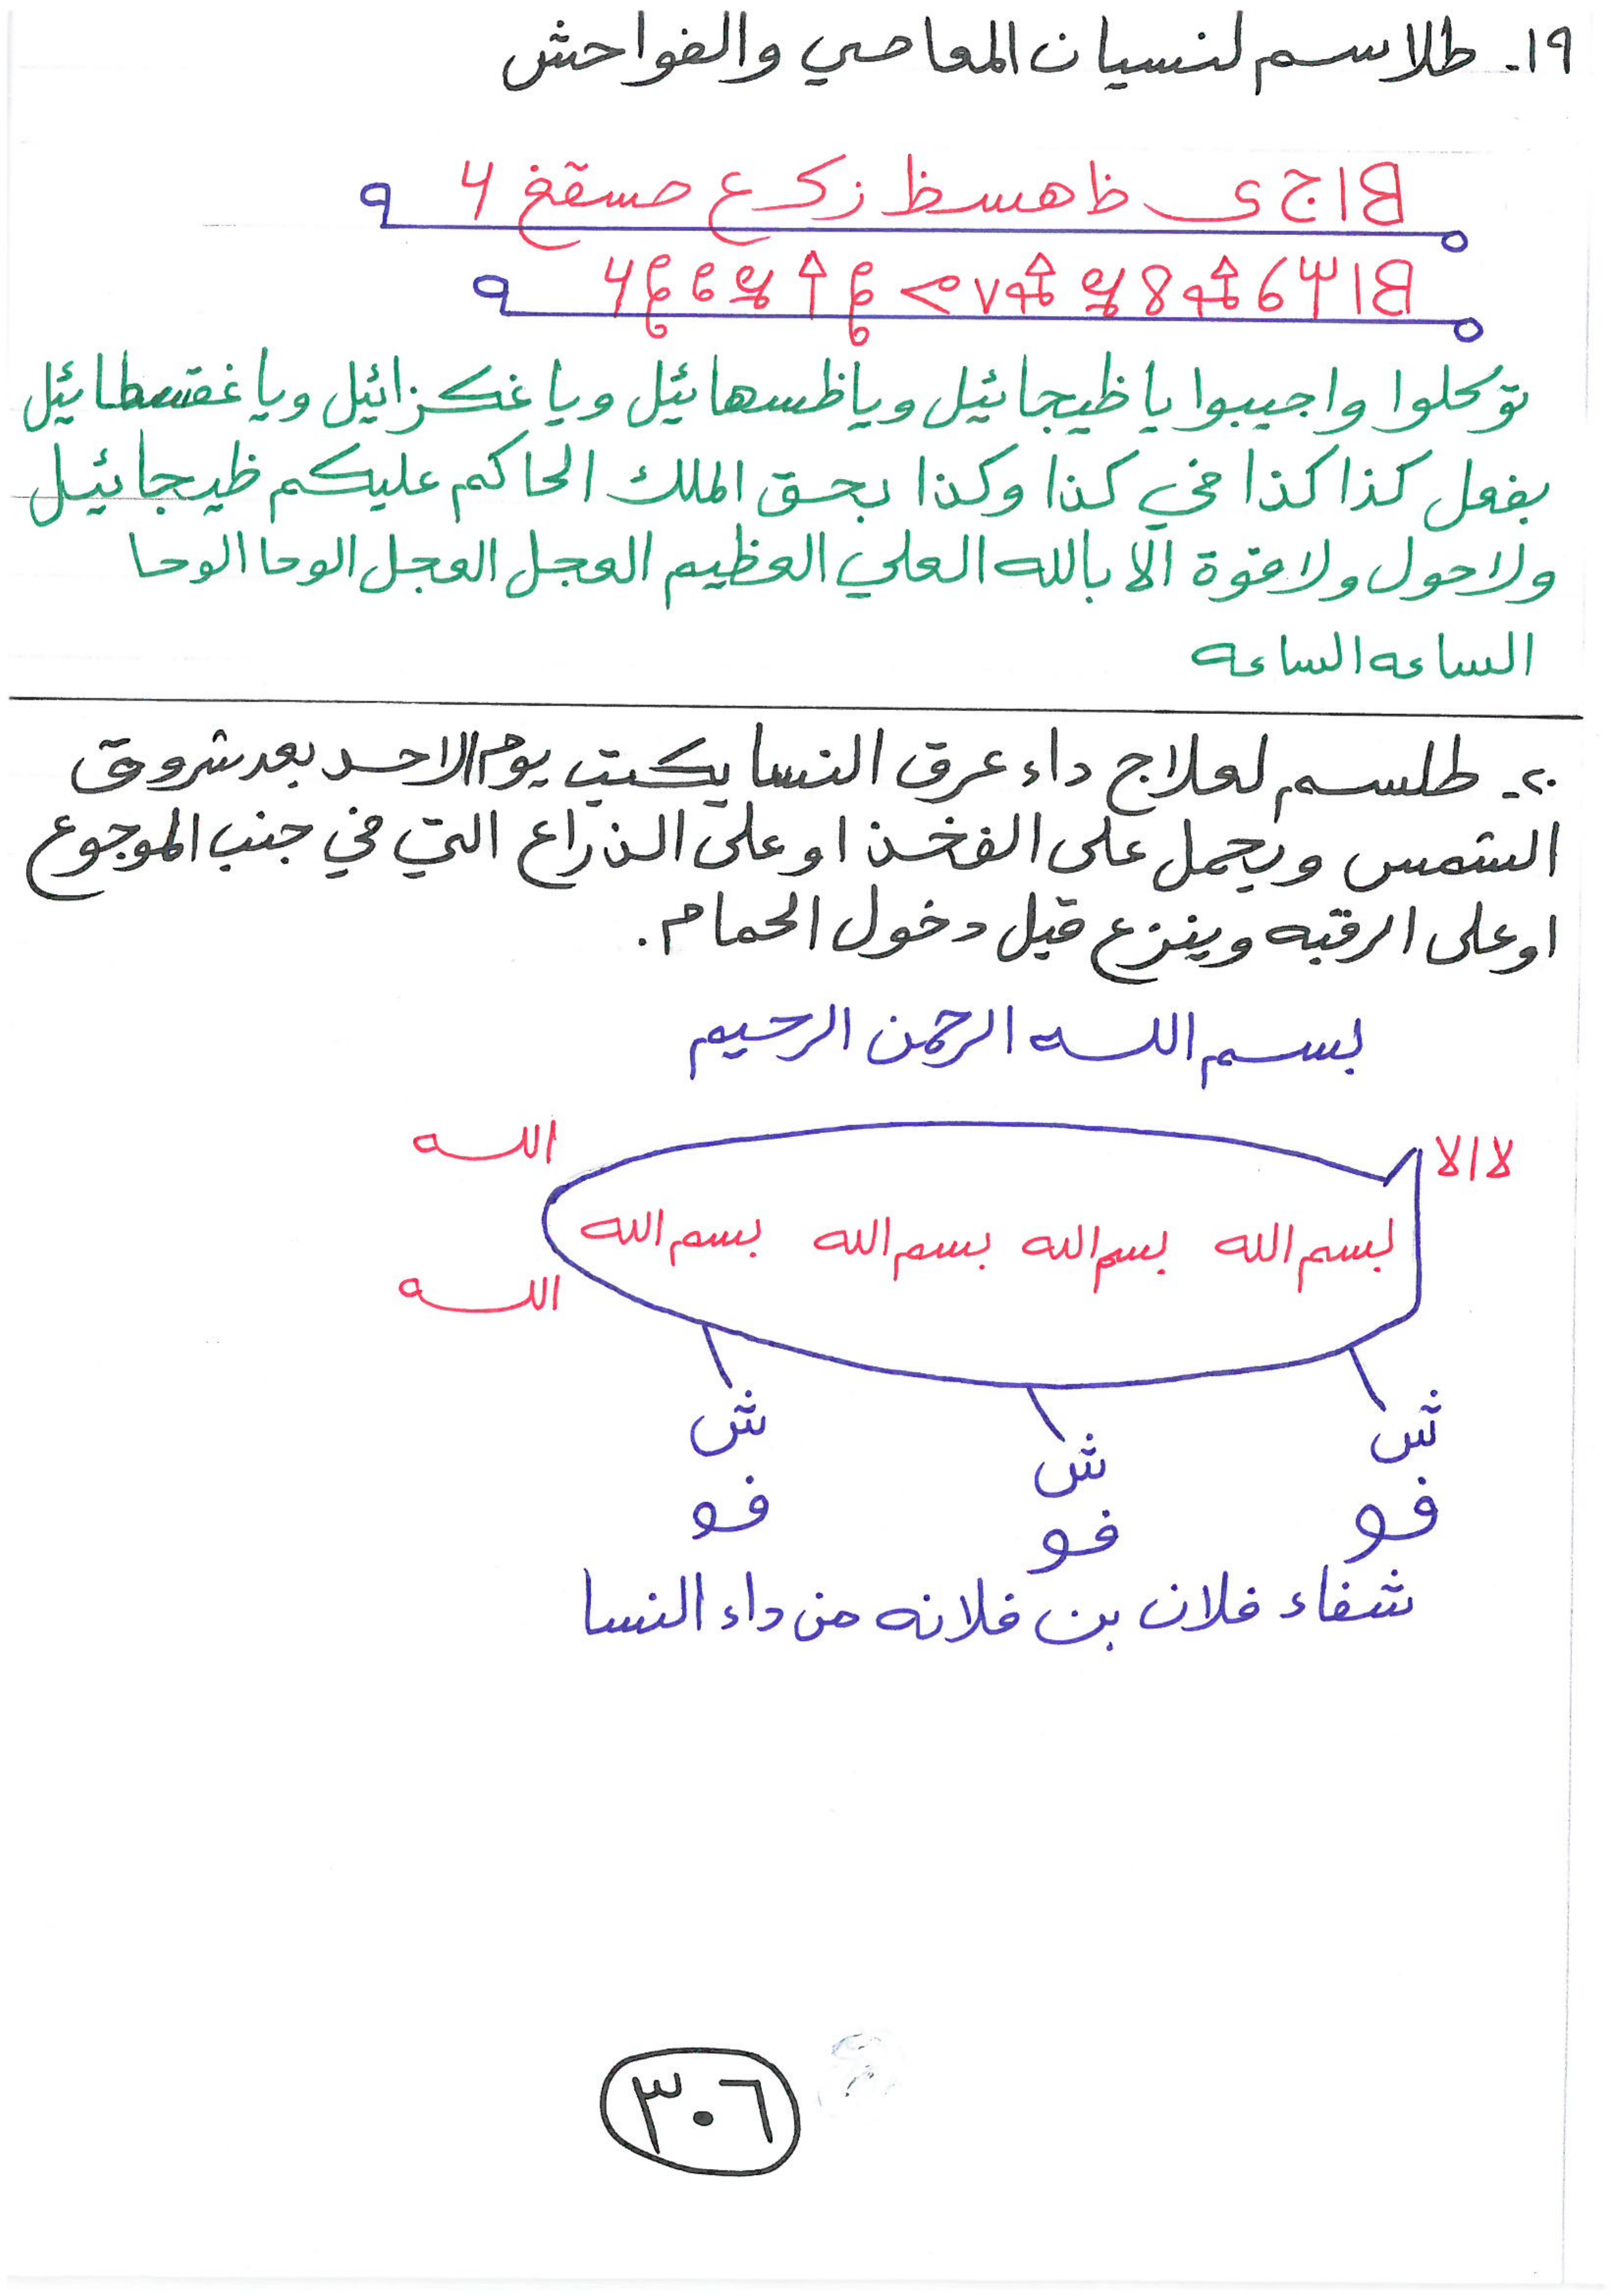 ١٩- طلاسم لنسيان المعاصي والفواحش
B ا ج ي ظ هسظ زكع صسقغ
توكلوا واجيبوا يا ظيجائيل وياظسهائيل ويا غكزائيل ويا غقسطائيل
بفعل كذا كذا في كذا وكذا بحق الملك الحاكم عليكم ظيجائيل
ولاحول ولا قوة الا بالله العلي العظيم العجل العجل الوحا الوحا
الساعه الساعه
٢٠- طلسم لعلاج داء عرق النسا يكتب يوم الاحد بعد شروق
الشمس ويحمل على الفخذ او على الذراع التي في جنب الموجوع
او على الرقبه وينزع قبل دخول الحمام.
بسم الله الرحمن الرحيم
لا الا الله
بسم الله بسم الله بسم الله بسم الله
الله
ش ش ش
فو فو فو
شفاء فلان بن فلانه من داء النسا
٣٠٦